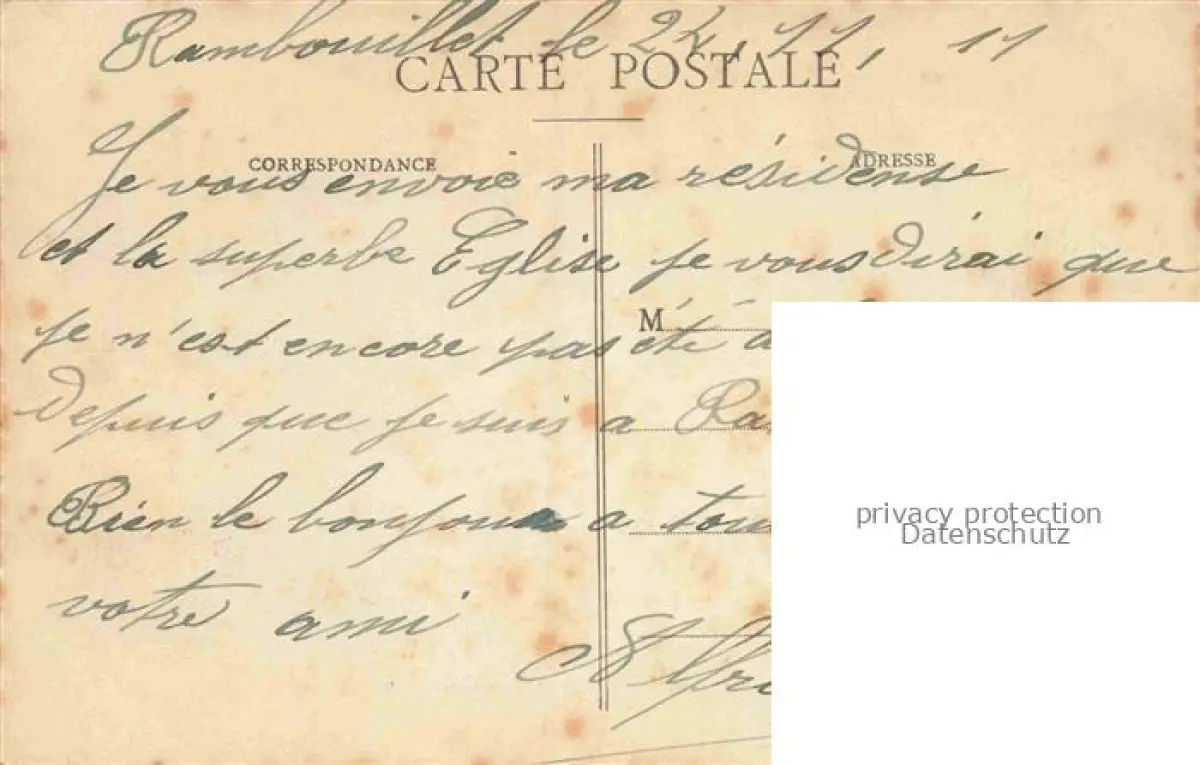 Rambouillet le 24, 11, 11
CARTE POSTALE
CORRESPONDANCE
ADRESSE
Je vous envoie ma résidense
et la superbe Eglise je vous dirai que
je n'est encore pas été
M
depuis que je suis a
Bien le bonjour a
votre ami
privacy protection
Datenschutz